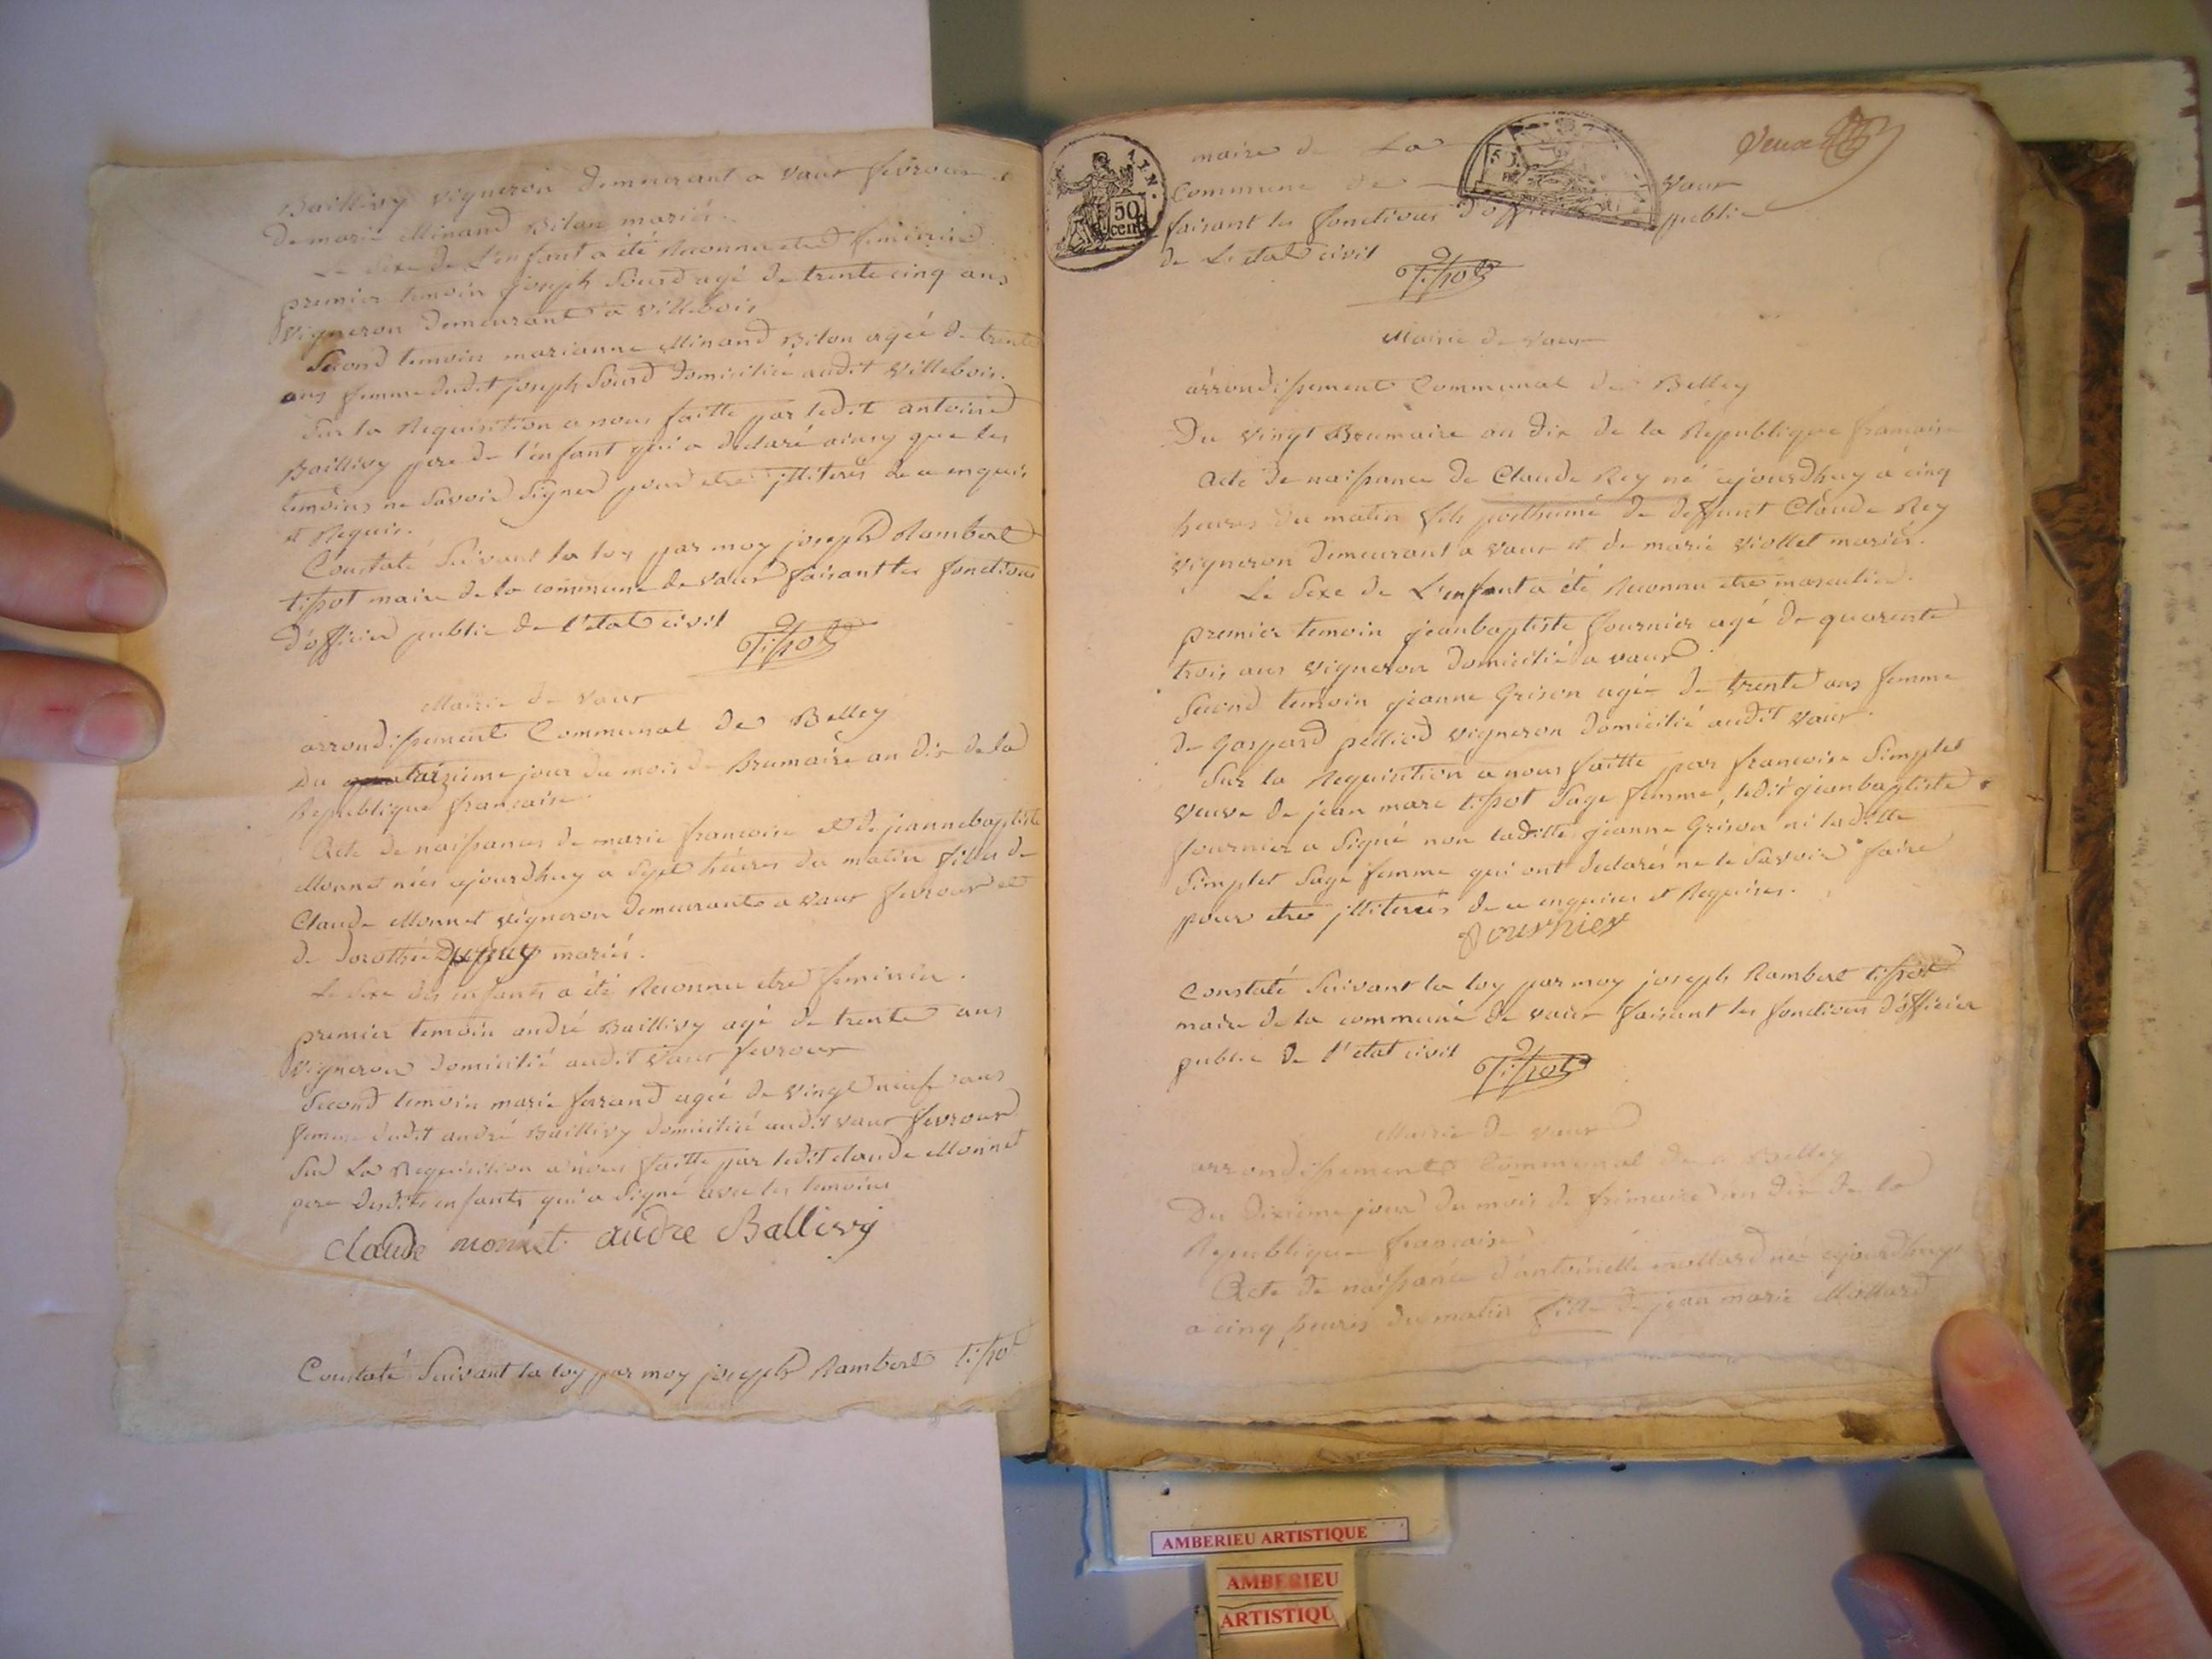 Baillivy vigneron demeurant a vaux fevroux et
de marie Minand Bilon mariés.
Le sexe de l'enfant a été reconnu etre feminin.
premier temoin joseph Sourd agé de trente cinq ans
vigneron demeurant a villebois
Second temoin marianne Minand Bilon agée de trente
ans femme dudit joseph Sourd domiciliée audit villebois.
Sur la requisition a nous faitte par ledit antoine
Baillivy pere de l'enfant qui a declaré ainsy que les
temoins ne savoir signer pour etre illiterés de ce enquis
et requis.
Constaté suivant la loy par moy joseph Rambert
tissot maire de la commune de vaux faisant les fonctions
d'officier public de l'état civil
Tissot
Mairie de vaux
arrondissement Communal de Belley
Du treizieme jour du mois de Brumaire an dix de la
Republique francaise
Acte de naissances de marie francoise et de jeannebaptiste
Monnet nées ajourdhuy a sept heures du matin filles de
Claude Monnet vigneron demeurant a vaux fevroux et
de dorothée Dupuy mariés.
Le sexe des enfants a été reconnu etre feminin.
premier temoin andré Baillivy agé de trente ans
vigneron domicilié audit vaux fevroux
Second temoin marie ferrand agée de vingt neuf ans
femme dudit andré Baillivy domiciliée audit vaux fevroux
Sur la requisition a nous faitte par ledit claude Monnet
pere desdits enfants qui a signé avec les temoins
claude monnet andre Ballivy
Constaté suivant la loy par moy joseph Rambert tissot
maire de la
Commune de vaux
faisant les fonctions d'officier public
de L'etat civil
Tissot
AIN.
50
cent
Mairie de vaux
arrondissement Communal de Belley
Du vingt Brumaire an dix de la République francaise
Acte de naissance de Claude Rey né ajourdhuy a cinq
heures du matin fils posthume de deffunt Claude Rey
vigneron demeurant a vaux et de marie viollet mariés.
Le sexe de L'enfant a été reconnu etre masculin.
premier temoin jeanbaptiste fournier agé de quarente
trois ans vigneron domicilié a vaux.
Second temoin jeanne Grison agée de trente ans femme
de gaspard pelliod vigneron domicilié audit vaux.
Sur la requisition a nous faitte par francoise Simplet
veuve de jean marc tissot sage femme, ledit jeanbaptiste
fournier a signé non laditte jeanne Grison ni laditte
Simplet sage femme qui ont declarés ne le savoir faire
pour etre illiterées de ce enquises et requises.
fournier
Constaté suivant la loy par moy joseph Rambert tissot
maire de la commune de vaux faisant les fonctions d'officier
public de l'etat civil
Tissot
Mairie de vaux
arrondissement Communal de Belley
Du dixieme jour du mois de frimaire an dix de la
Republique francaise
Acte de naissance d'antoinette mollard née ajourdhuy
a cinq heures du matin fille de jean marie Mollard
AMBERIEU ARTISTIQUE
AMBERIEU
ARTISTIQU